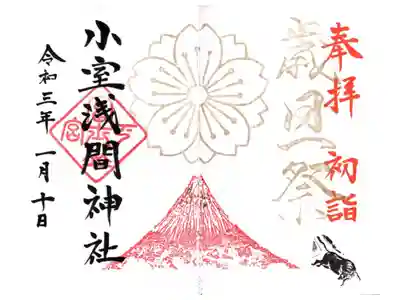 奉拝 初詣
歳旦祭
小室浅間神社
令和三年 一月 十日